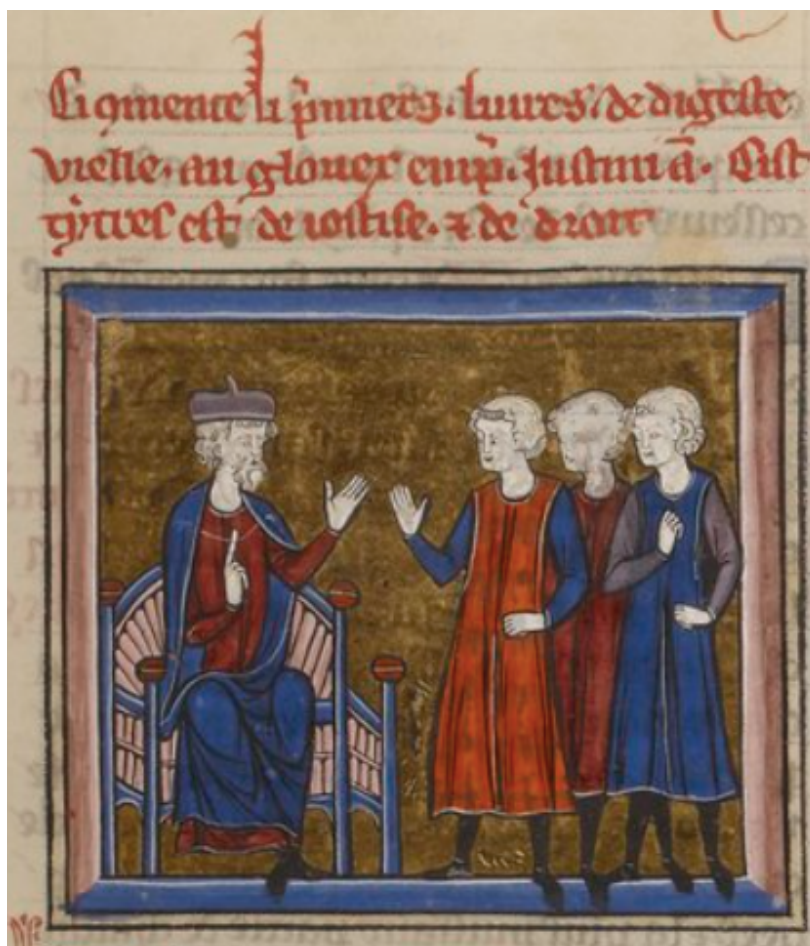 Ci ꝯmence li p̃miers. liures. de digeste
vielle. au glorieꝰ emp̃. Justiniā. Cist
tỹtres est de iostise. ⁊ de droit